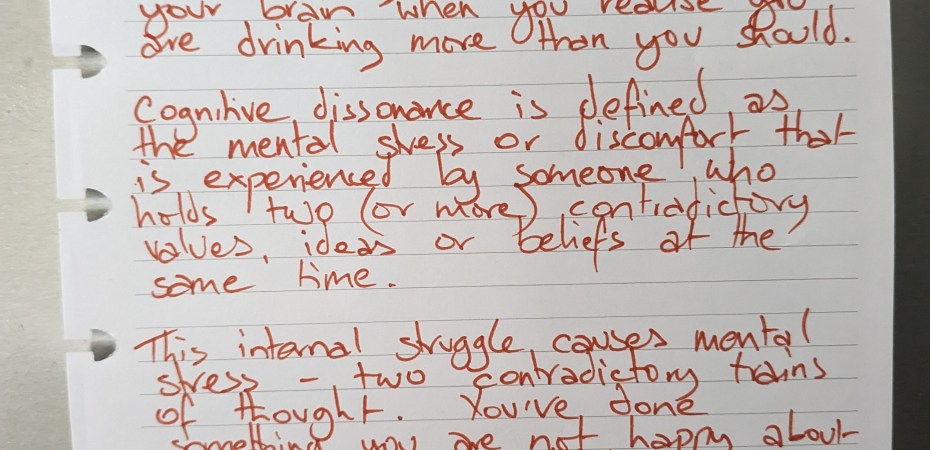 your brain when you realise you
are drinking more than you should.
Cognitive dissonance is defined as
the mental stress or discomfort that
is experienced by someone who
holds two (or more) contradictory
values, ideas or beliefs at the
same time.
This internal struggle causes mental
stress - two contradictory trains
of thought. You've done
something you are not happy about